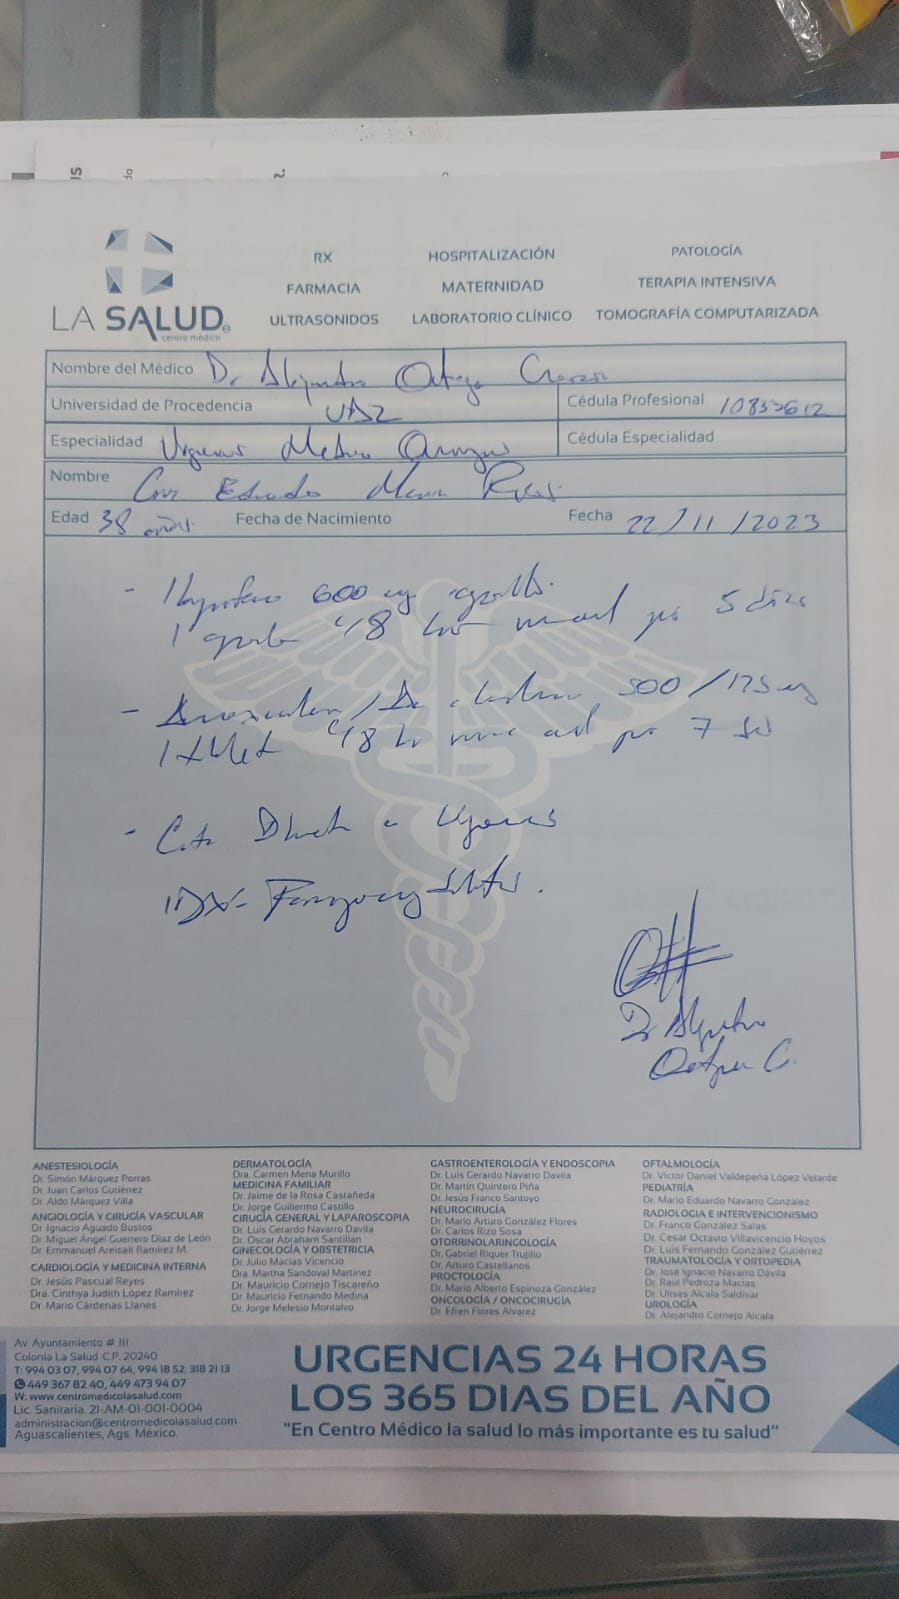 RX HOSPITALIZACIÓN PATOLOGÍA
FARMACIA MATERNIDAD TERAPIA INTENSIVA
ULTRASONIDOS LABORATORIO CLÍNICO TOMOGRAFÍA COMPUTARIZADA
LA SALUD
centro médico
Nombre del Médico Dr. Alejandro Ortega
Universidad de Procedencia UAZ Cédula Profesional
Especialidad Cédula Especialidad
Nombre Eduardo
Edad 38 años Fecha de Nacimiento Fecha 22/11/2023
- 600 mg
1 por 5 días
- 500/125 mg
1 por 7
- Urgencias
IDX-
Dr Alejandro
Ortega C.
ANESTESIOLOGÍA
Dr. Simón Márquez Porras
Dr. Juan Carlos Gutiérrez
Dr. Aldo Márquez Villa
ANGIOLOGÍA Y CIRUGÍA VASCULAR
Dr. Ignacio Aguado Bustos
Dr. Miguel Ángel Guerrero Díaz de León
Dr. Emmanuel Areisaii Ramírez M.
CARDIOLOGÍA Y MEDICINA INTERNA
Dr. Jesús Pascual Reyes
Dra. Cinthya Judith López Ramírez
Dr. Mario Cárdenas Llanes
DERMATOLOGÍA
Dra. Carmen Mena Murillo
MEDICINA FAMILIAR
Dr. Jaime de la Rosa Castañeda
Dr. Jorge Guillermo Castillo
CIRUGÍA GENERAL Y LAPAROSCOPIA
Dr. Luis Gerardo Navarro Davila
Dr. Oscar Abraham Santillan
GINECOLOGÍA Y OBSTETRICIA
Dr. Julio Macías Vicencio
Dra. Martha Sandoval Martínez
Dr. Mauricio Cornejo Tiscareño
Dr. Mauricio Fernando Medina
Dr. Jorge Melesio Montalvo
GASTROENTEROLOGÍA Y ENDOSCOPIA
Dr. Luis Gerardo Navarro Davila
Dr. Martín Quintero Piña
Dr. Jesús Franco Santoyo
NEUROCIRUGÍA
Dr. Mario Arturo González Flores
Dr. Carlos Rizo Sosa
OTORRINOLARINGOLOGÍA
Dr. Gabriel Riquer Trujillo
Dr. Arturo Castellanos
PROCTOLOGÍA
Dr. Mario Alberto Espinoza González
ONCOLOGÍA / ONCOCIRUGÍA
Dr. Efren Flores Alvarez
OFTALMOLOGÍA
Dr. Victor Daniel Valdepeña López Velarde
PEDIATRÍA
Dr. Mario Eduardo Navarro González
RADIOLOGIA E INTERVENCIONISMO
Dr. Franco González Salas
Dr. Cesar Octavio Villavicencio Hoyos
Dr. Luis Fernando González Gutiérrez
TRAUMATOLOGÍA Y ORTOPEDIA
Dr. José Ignacio Navarro Dávila
Dr. Raúl Pedroza Macías
Dr. Ulises Alcala Saldívar
UROLOGÍA
Dr. Alejandro Cornejo Alcala
Av. Ayuntamiento # 111
Colonia La Salud C.P. 20240
T: 994 03 07, 994 07 64, 994 18 52, 318 21 13
449 367 82 40, 449 473 94 07
W: www.centromedicolasalud.com
Lic. Sanitaria. 21-AM-01-001-0004
administracion@centromedicolasalud.com
Aguascalientes, Ags. México.
URGENCIAS 24 HORAS
LOS 365 DIAS DEL AÑO
"En Centro Médico la salud lo más importante es tu salud"